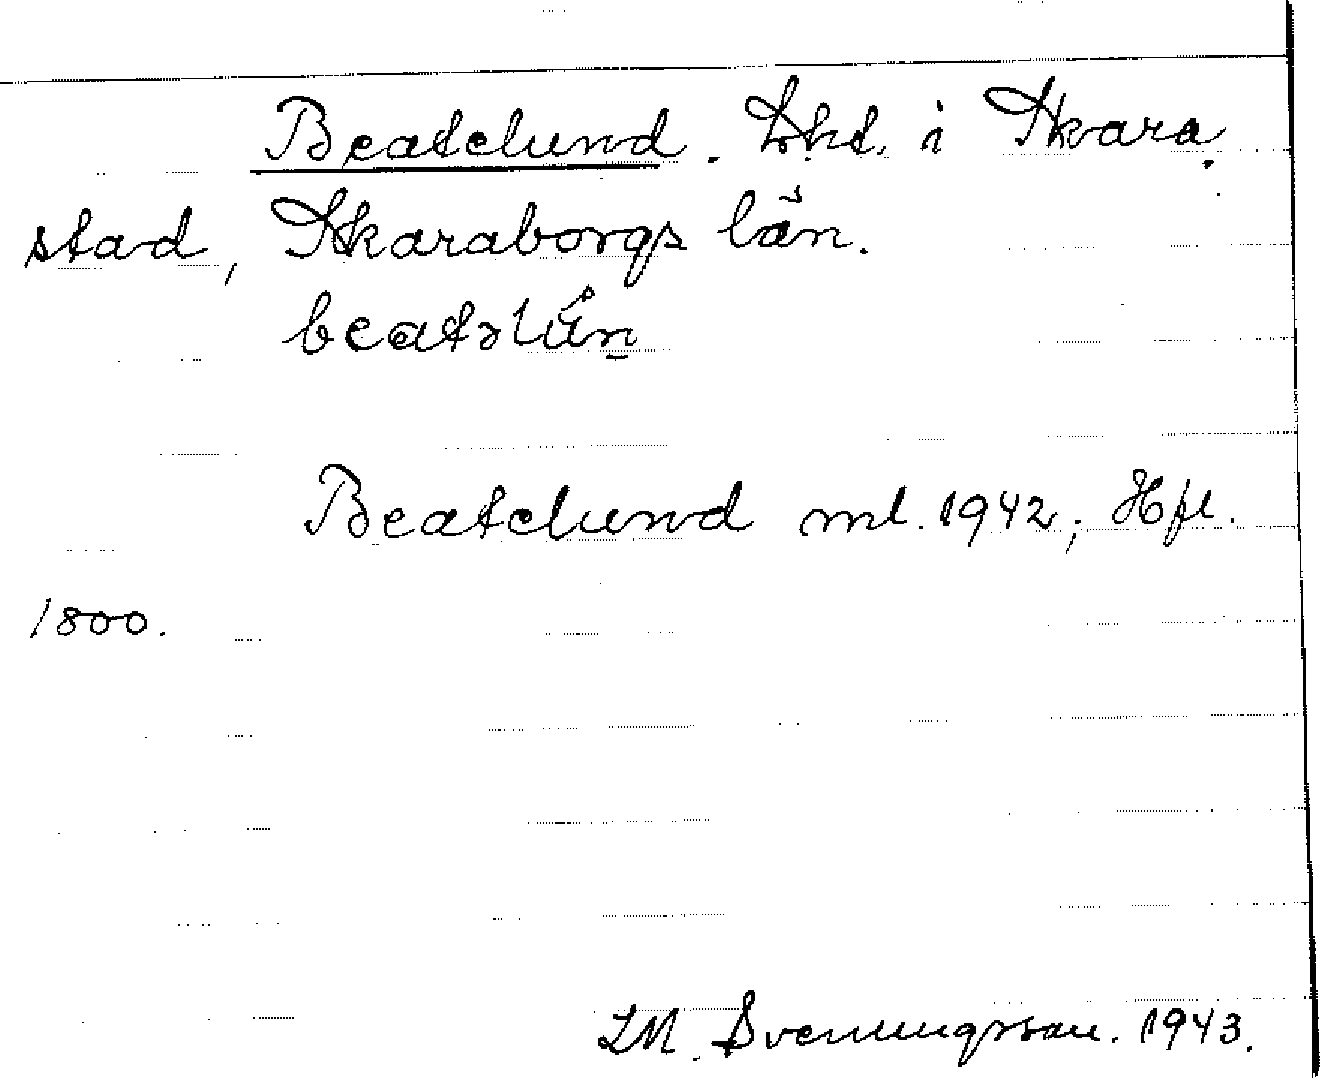 Beatelund. Lht. i Skara
stad, Skaraborgs län.
beatəlůn̲
Beatelund ml. 1942; Hfl.
1800.
LM. Svenungsson. 1943.